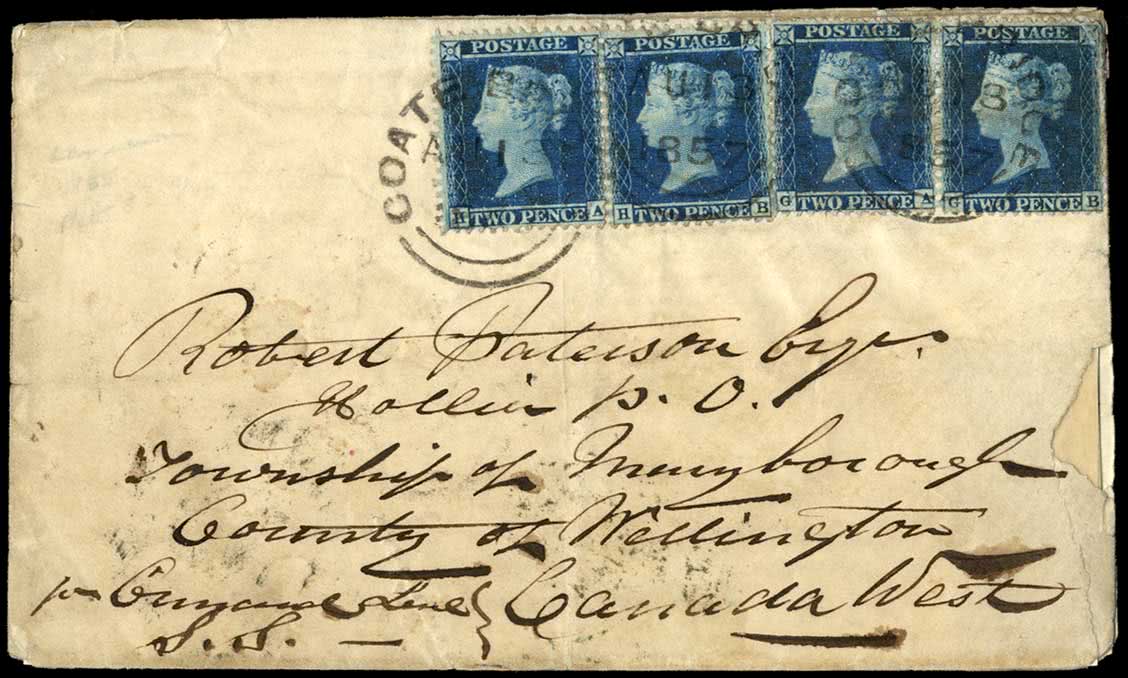 POSTAGE POSTAGE POSTAGE POSTAGE
COATB
AU 13
1857
H TWO PENCE A H TWO PENCE B G TWO PENCE A G TWO PENCE B
Robert Paterson Esqr.
Hollin P. O.
Township of Maryborough
County of Wellington
per Cunard Line } Canada West
S. S.